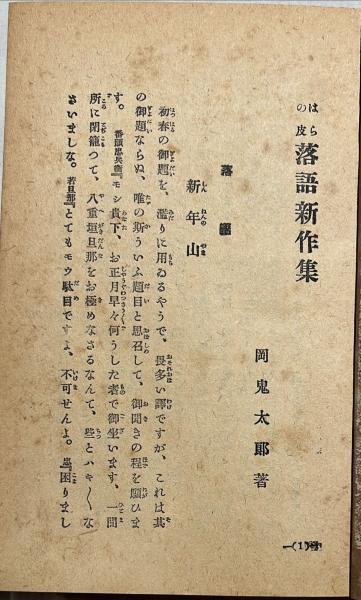 はらの皮
落語新作集
岡鬼太郎著
落語
新年山
初春の御題を、濫りに用ゐるやうで、畏多い譯ですが、これは其
の御題ならぬ、唯の斯ういふ題目と思召して、御聞きの程を願ひま
す。番頭忠兵衛『モシ貴下、お正月早々何うした者で御坐います、一間
所に閉籠つて、八重垣旦那をお極めなさるなんて、些とハキ〳〵な
さいましな。若旦那『とてもモウ駄目ですよ、不可せんよ。忠『困りまし
(1)